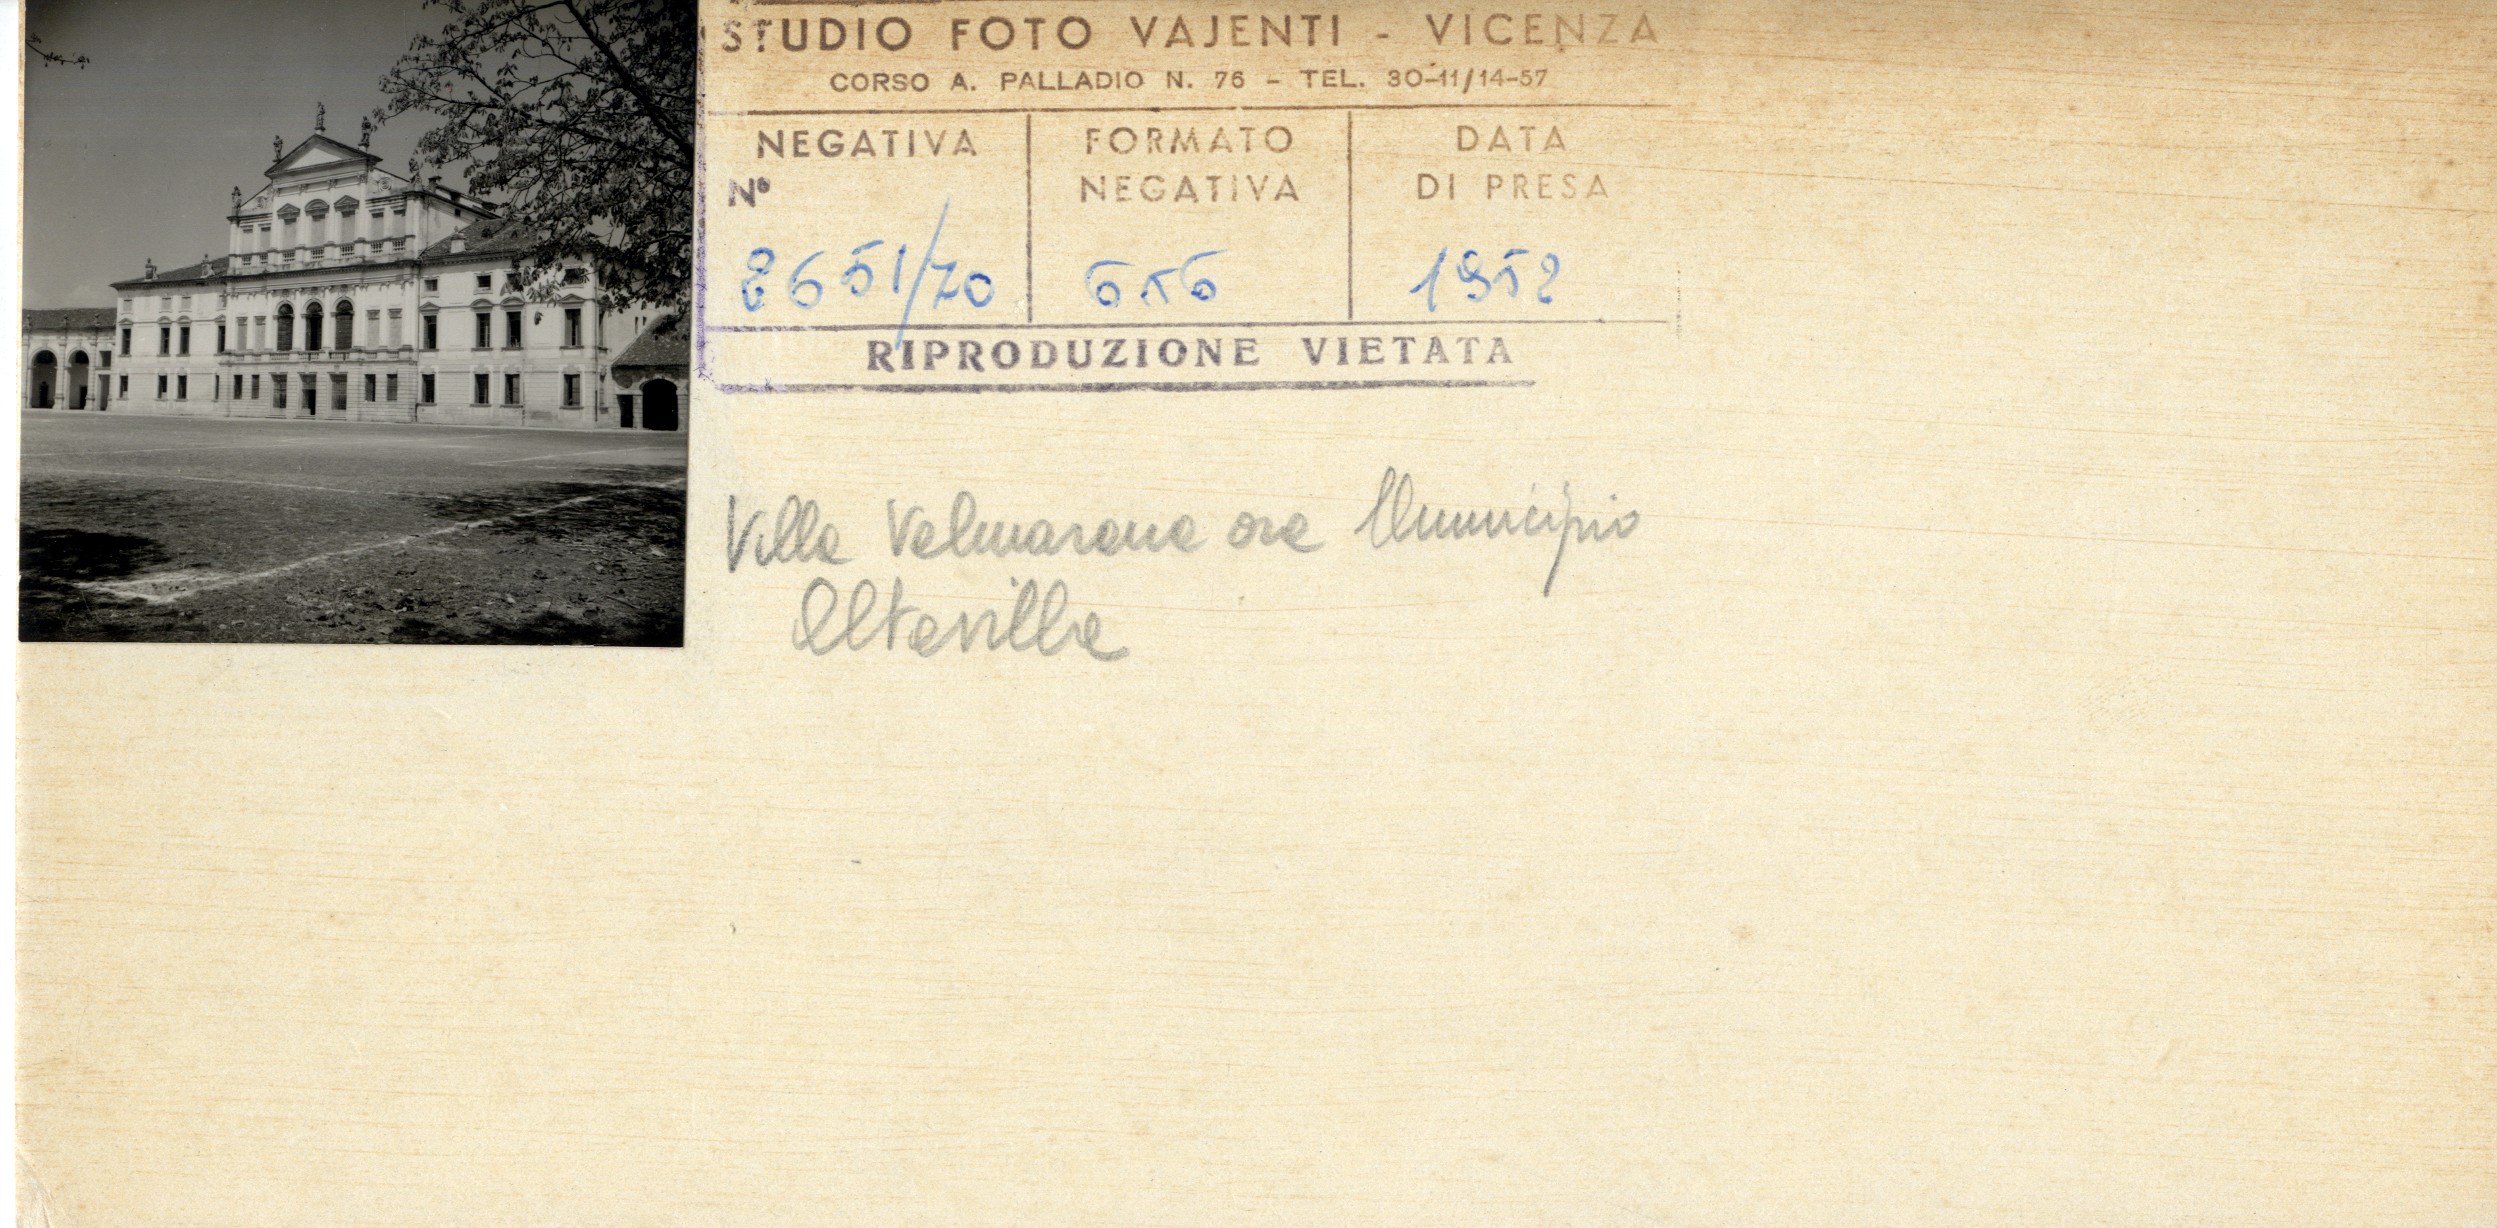 STUDIO FOTO VAJENTI - VICENZA
CORSO A. PALLADIO N. 76 - TEL. 30-11/14-57
NEGATIVA Nº
FORMATO NEGATIVA
DATA DI PRESA
8651/70
6x6
1952
RIPRODUZIONE VIETATA
Villa Valmarana ora Municipio
Altavilla